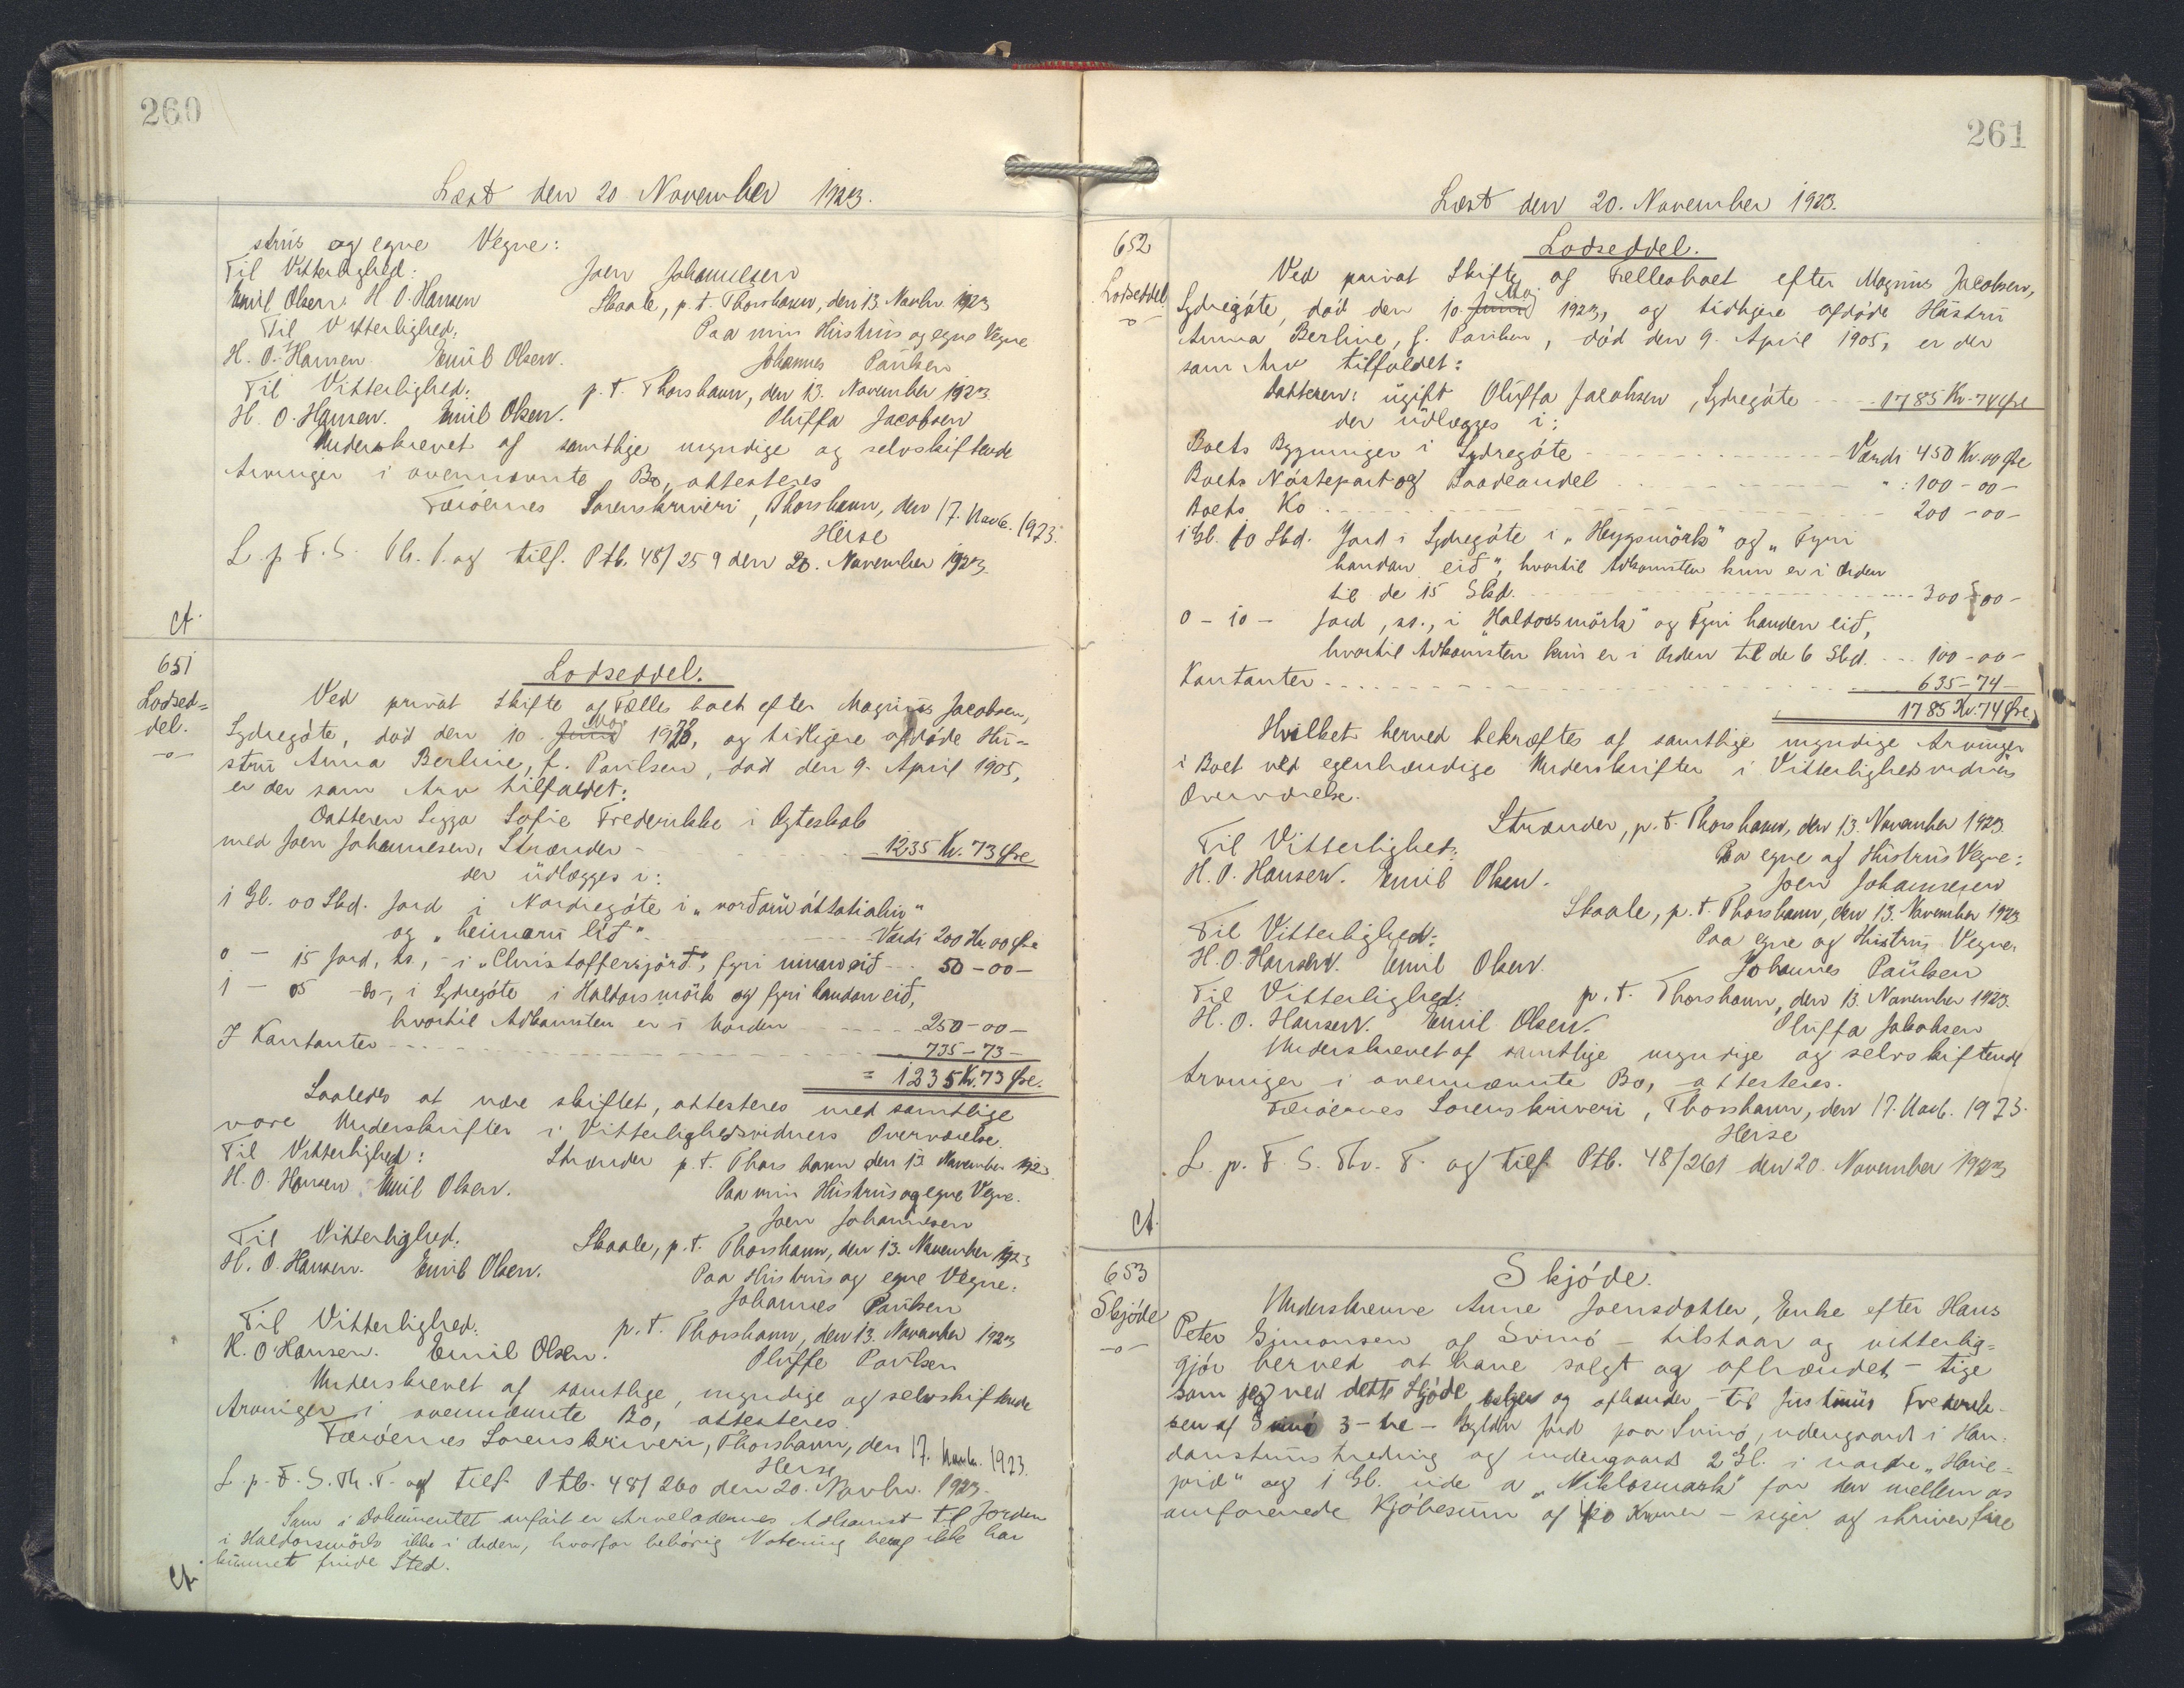 260
Læst den 20 November 1923.
strus og egne Vegne:
Til Vitterlighed:
Joen Johannesen
Emil Olsen. H. O. Hansen
Skaale, p. t. Thorshavn, den 13 Novbr. 1923
Til Vitterlighed:
Paa min Hustrus og egne Vegne
H. O. Hansen. Emil Olsen.
Johannes Paulsen
Til Vitterlighed:
p. t. Thorshavn, den 13. November 1923
H. O. Hansen. Emil Olsen.
Oluffa Jacobsen
Underskrevet af samtlige myndige og selvskiftende
Arvinger i ovennævnte Bo, attesteres
Færöernes Sorenskriveri, Thorshavn, den 17. Novb. 1923.
Heise
L. p. F. S. Th. T. og tilf. Ptb. 48/259 den 20. November 1923.
Ct.
651
Lodsed=
del.
Lodseddel.
Ved privat Skifte af Fælles boet efter Magnus Jacobsen,
Sydregóte, död den 10. Juni Maj 1923, og tidligere afdöde Hu=
stru Anna Berline, f. Paulsen, död den 9. April 1905,
er der som Arv tilfaldet:
Datteren Sigga Sofie Frederikke i Ægteskab
med Joen Johannesen, Strænder - 1235 Kr. 73 Øre
der udlægges i:
1 Gl. 00 Skd. Jord i Nordregóte i „norðaru áttatialin"
og „heimaru lið" Værdi 200 Kr. 00 Øre
0 - 15 Jord, ss., - i „Christoffersjörð", fyri innan eið - 50-00-
1 - 05 -so-, i Sydregóte i Haldorsmörk og fyri handan eið,
hvortil Adkomsten er i Uorden 250-00-
I Kontanter 735-73-
= 1235 Kr. 73 Øre.
Saaledes at være skiftet, attesteres med samtlige
vore Underskrifter i Vitterlighedsvidners Overværelse.
Til Vitterlighed:
Strænder p. t. Thorshavn den 13 November 1923
H. O. Hansen Emil Olsen.
Paa min Hustrus og egne Vegne.
Joen Johannesen
Til Vitterlighed:
Skaale, p. t. Thorshavn, den 13. November 1923
H. O. Hansen. Emil Olsen.
Paa Hustrus og egne Vegne:
Johannes Paulsen
Til Vitterlighed:
p. t. Thorshavn, den 13. November 1923
H. O. Hansen. Emil Olsen.
Oluffe Paulsen
Underskrevet af samtlige, myndige og selvskiftende
Arvinger i ovennævnte Bo, attesteres.
Færöernes Sorenskriveri, Thorshavn, den 17. Novb. 1923.
Heise
L. p. F. S. Th. T. og tilf. Ptb. 48/260 den 20. Novbr. 1923.
Som i Dokumentet anfört er Arveladernes Adkomst til Jorden
i Haldorsmörk ikke i Orden, hvorfor behörig Notering herog ikke har
kunnet finde Sted.
Ct.
261
Læst den 20. November 1923.
652
Lodseddel
Lodseddel.
Ved privat Skifte af Fællesboet efter Magnus Jacobsen,
Sydregóte, död den 10. Juni Maj 1923, og tidligere afdöde Hustru
Anna Berline, f. Paulsen, död den 9. April 1905, er der
som Arv tilfaldet:
Datteren: ugift Oluffa Jacobsen, Sydregóte 1785 Kr. 74 Øre
der udlægges i:
Boets Bygninger i Sydregóte Værdi 450 Kr. 00 Øre
Boets Nóstepart og Baadeandel " : 100-00-
Boets Ko 200-00-
1 Gl. 10 Skd. Jord i Sydregóte i „Heygsmörk" og „Fyri
handan eið", hvortil Adkomsten kun er i Orden
til de 15 Skd. 300-00-
0 - 10 - Jord, ss., i „Haldorsmörk" og Fyri handan eið,
hvortil Adkomsten kun er i Orden til de 6 Skd. 100-00-
Kontanter 635-74-
1785 Kr. 74 Øre.
Hvilket herved bekræftes af samtlige myndige Arvinger
i Boet ved egenhændige Underskrifter i Vitterlighedsvidners
Overværelse.
Strænder, p. t. Thorshavn, den 13. November 1923.
Til Vitterlighed:
Paa egne og Hustrus Vegne:
H. O. Hansen. Emil Olsen.
Joen Johannesen
Skaale, p. t. Thorshavn, den 13. November 1923
Til Vitterlighed:
Paa egne og Hustrus Vegne.
H. O. Hansen. Emil Olsen.
Johannes Paulsen
Til Vitterlighed:
p. t. Thorshavn, den 13. November 1923.
H. O. Hansen. Emil Olsen.
Oluffa Jakobsen
Underskrevet af samtlige myndige og selvskiftende
Arvinger i ovennævnte Bo, attesteres.
Færöernes Sorenskriveri, Thorshavn, den 17. Novb. 1923.
Heise
L. p. F. S. Thv. T. og tilf. Ptb. 48/261 den 20. November 1923
Ct.
653
Skjöde
Skjöde.
Underskrevne Anne Joensdatter, Enke efter Hans
Peter Simonsen af Svinö - tilstaar og vitterlig=
gjör herved at have solgt og afhændet - lige
som jeg ved dette Skjöde sælger og afhænder - til Justinus Frederik-
sen af Svinö 3-tre- Gylden Jord paa Svinö, udengaards i Han-
danstunstredung og indengaards 2 Gl. i
og 1 Gl. ude a „Niklosmark" for den mellem os
omforenede Kjöbesum af Kroner - siger og skriver fire